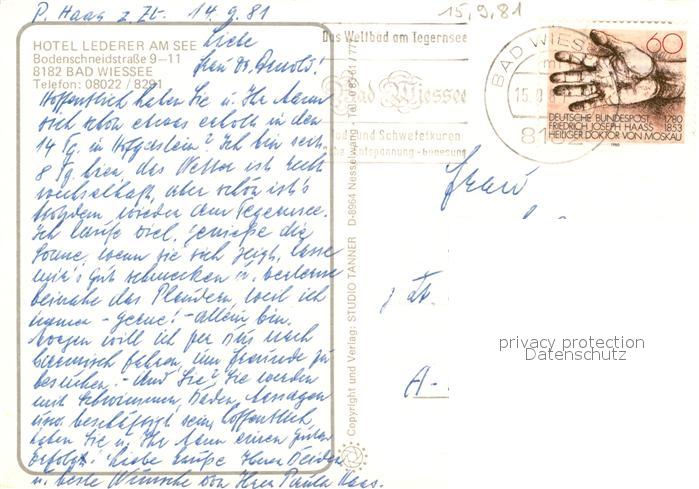 P. Haag z. Zt. 14.9.81
15.9.81
HOTEL LEDERER AM SEE
Bodenschneidstraße 9–11
8182 BAD WIESSEE
Telefon: 08022 / 8291
Liebe
Frau Dr. Arnold!
Hoffentlich haben Sie u. Ihr Mann
sich schon etwas erholt in den
14 Tg. in Hofgastein? Ich bin seit
8 Tg. hier, das Wetter ist recht
wechselhaft, aber schön ist's
trotzdem, wieder am Tegernsee.
Ich laufe viel, genieße die
Sonne, wenn sie sich zeigt, lasse
mir's gut schmecken u. verlerne
beinahe das Plaudern, weil ich
immer - gerne! - allein bin.
Morgen will ich per Bus nach
fahren, um Freunde zu
besuchen. - Und Sie? Sie werden
mit Schwimmen, Baden, Massagen
usw. beschäftigt sein. Hoffentlich
haben Sie u. Ihr Mann einen guten
Erfolg! Liebe Grüße Ihnen Beiden
u. beste Wünsche von Ihrer Paula Haas.
Copyright und Verlag: STUDIO TANNER D-8964 Nesselwang · Tel. 0 83 61 / 771
Das Weltbad am Tegernsee
Bad Wiessee
Jod und Schwefelkuren
Entspannung - Genesung
BAD WIESSEE
8182
60
DEUTSCHE BUNDESPOST 1780
FRIEDRICH JOSEPH HAASS 1853
HEILIGER DOKTOR VON MOSKAU
1980
Frau
A-
privacy protection
Datenschutz